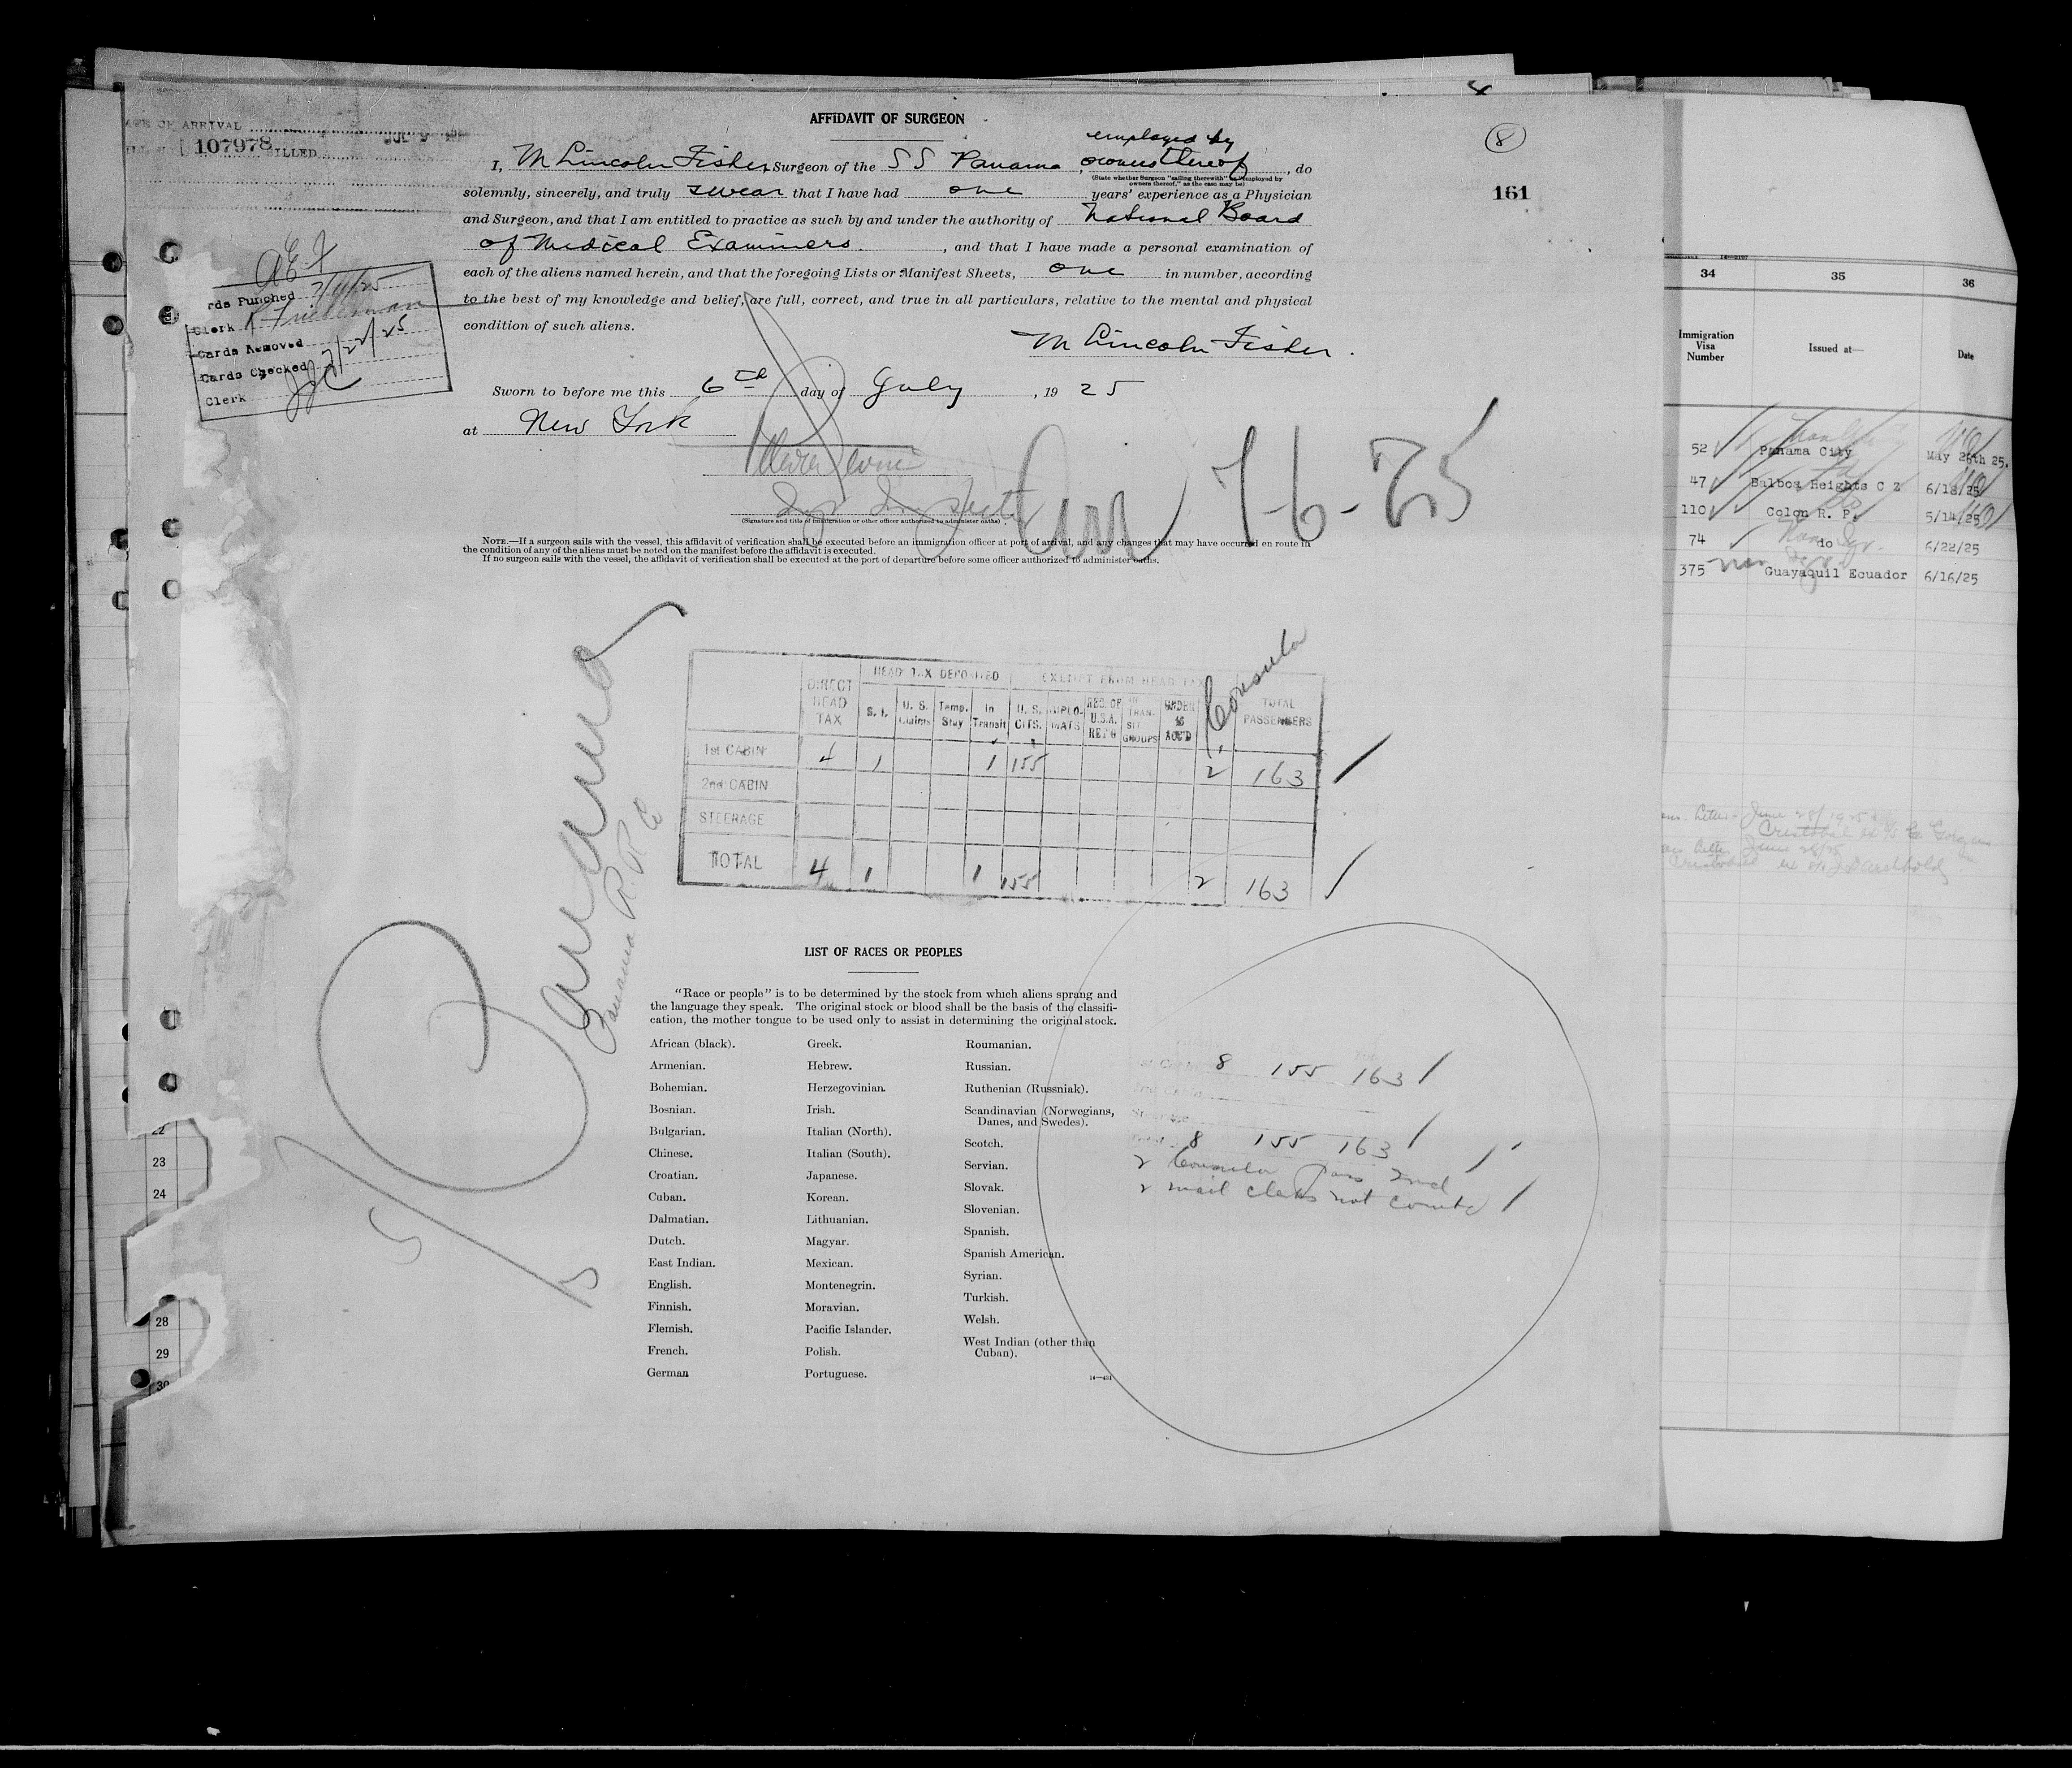 AFFIDAVIT OF SURGEON
8
161
DATE OF ARRIVAL
107978 BILLED
employed by
I, M Lincoln Fisher, Surgeon of the S S Panama, owners thereof, do
(State whether Surgeon "sailing therewith" or "employed by
owners thereof," as the case may be)
solemnly, sincerely, and truly swear that I have had one years' experience as a Physician
and Surgeon, and that I am entitled to practice as such by and under the authority of National Board
of Medical Examiners, and that I have made a personal examination of
each of the aliens named herein, and that the foregoing Lists or Manifest Sheets, one in number, according
to the best of my knowledge and belief, are full, correct, and true in all particulars, relative to the mental and physical
condition of such aliens.
M Lincoln Fisher.
Sworn to before me this 6th day of July, 1925
at New York
(Signature and title of immigration or other officer authorized to administer oaths)
Arr 7-6-25
NOTE.—If a surgeon sails with the vessel, this affidavit of verification shall be executed before an immigration officer at port of arrival, and any changes that may have occurred en route in
the condition of any of the aliens must be noted on the manifest before the affidavit is executed.
If no surgeon sails with the vessel, the affidavit of verification shall be executed at the port of departure before some officer authorized to administer oaths.
rds Punched 7/11/25
Clerk
Cards Removed
Cards Checked 7/22/25
Clerk
Panama
Panama R. R. Co
DIRECT HEAD TAX
HEAD TAX DEPOSITED
EXEMPT FROM HEAD TAX
S. I.
U. S. Claims
Temp. Stay
In Transit
U. S. CITS.
DIPLO-MATS
RES. OF U.S.A. RET'G
IN TRAN-SIT GROUPS
UNDER 16 ACC'D
Consular
TOTAL PASSENGERS
1st CABIN 4 1 1 155 2 163
2nd CABIN
STEERAGE
TOTAL 4 1 1 155 2 163
LIST OF RACES OR PEOPLES
"Race or people" is to be determined by the stock from which aliens sprang and
the language they speak. The original stock or blood shall be the basis of the classifi-
cation, the mother tongue to be used only to assist in determining the original stock.
African (black).
Armenian.
Bohemian.
Bosnian.
Bulgarian.
Chinese.
Croatian.
Cuban.
Dalmatian.
Dutch.
East Indian.
English.
Finnish.
Flemish.
French.
German
Greek.
Hebrew.
Herzegovinian.
Irish.
Italian (North).
Italian (South).
Japanese.
Korean.
Lithuanian.
Magyar.
Mexican.
Montenegrin.
Moravian.
Pacific Islander.
Polish.
Portuguese.
Roumanian.
Russian.
Ruthenian (Russniak).
Scandinavian (Norwegians,
Danes, and Swedes).
Scotch.
Servian.
Slovak.
Slovenian.
Spanish.
Spanish American.
Syrian.
Turkish.
Welsh.
West Indian (other than
Cuban).
8 155 163
8 155 163
2 Consular Pass
2 mail clerks not counted
22
23
24
28
29
30
34
35
36
Immigration
Visa
Number
Issued at—
Date
52 Panama City May 28th 25.
47 Balboa Heights C Z 6/18/25
110 Colon R. P. 5/14/25
74 do 6/22/25
375 Guayaquil Ecuador 6/16/25